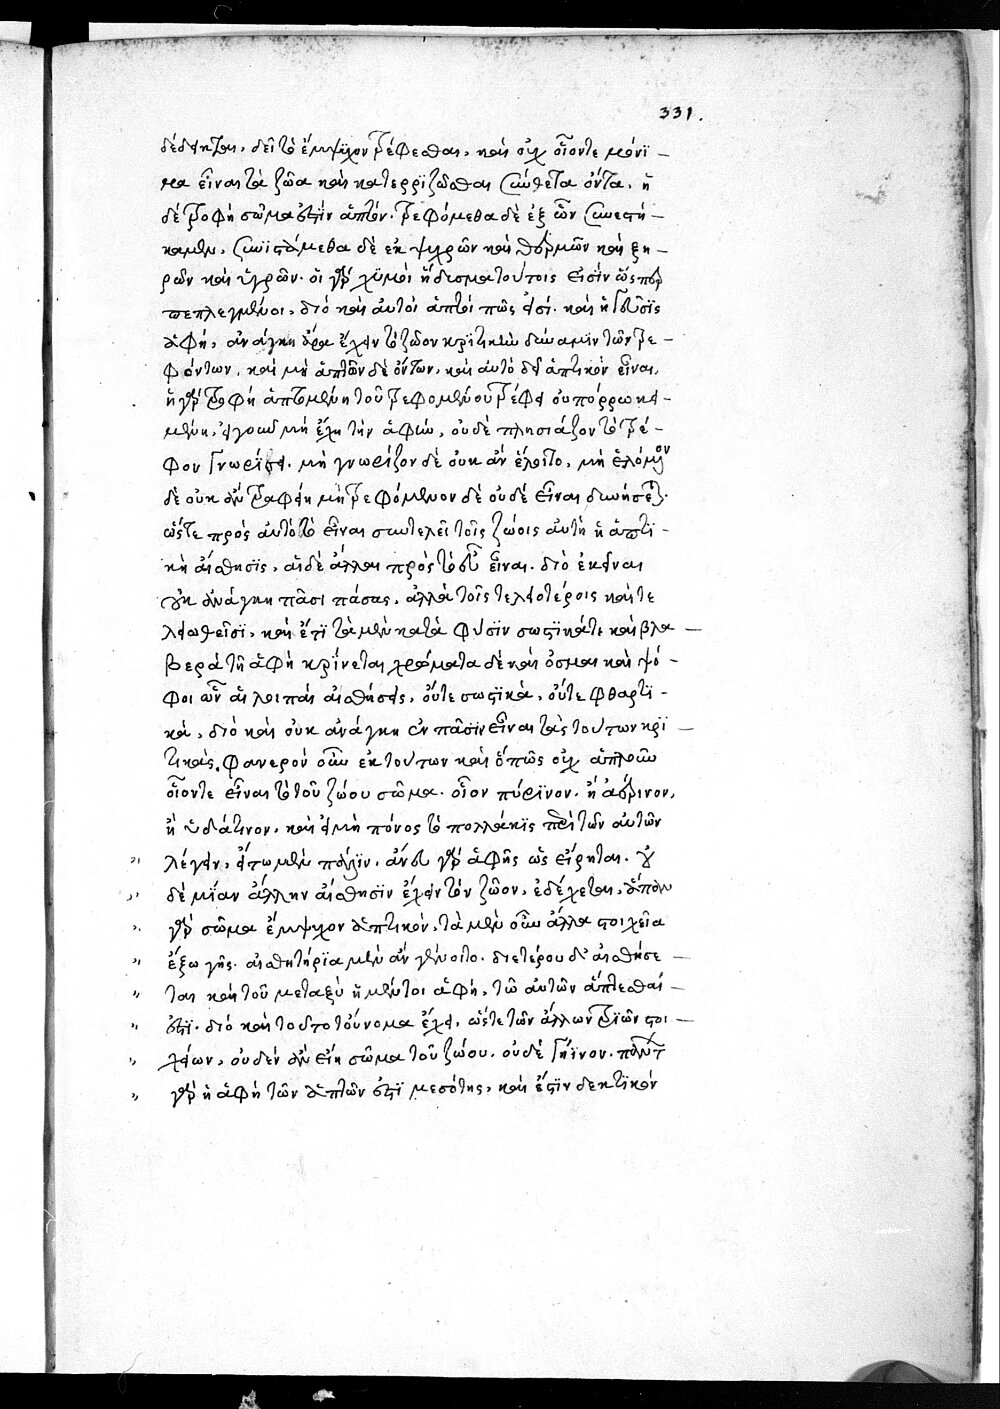 331.
δέδεικται, δεῖ τὸ ἔμψυχον τρέφεσθαι, καὶ οὐχ οἷόν τε μόνι-
μα εἶναι τὰ ζῶα καὶ κατερριζῶσθαι σύνθετα ὄντα, ἡ
δὲ τροφὴ σῶμα ἐστὶν ἁπτόν. τρεφόμεθα δὲ ἐξ ὧν συνεστή-
καμεν, συνϊστάμεθα δὲ ἐκ ψυχρῶν καὶ θερμῶν καὶ ξη-
ρῶν καὶ ὑγρῶν. οἱ γὰρ χϋμοὶ ἥδισμα τούτοις εἰσὶν ὥσπερ
πεπλεγμένοι, διὸ καὶ αὐτοὶ ἁπτοί πως εἰσί. καὶ ἡ γεῦσϊς
ἁφή, ἀνάγκη ἄρα ἔχειν τὸ ζῶον κρϊτικὴν δύναμιν τῶν τρε-
φόντων, καὶ μὴ ἁπτῶν δὲ ὄντων, καὶ αὐτὸ δεῖ ἁπτικὸν εἶναι,
ἡ γὰρ τροφὴ ἁπτομένη τοῦ τρεφομένου τρέφει οὐ πόρρω κει-
μένη, εἰ γοῦν μὴ ἔχη τὴν ἁφὴν, οὐδὲ πλησιάζον τὸ τρέ-
φον γνωρίσει. μὴ γνωρίζον δὲ οὐκ ἂν ἕλοιτο, μὴ ἑλόμενον
δὲ οὐκ ἂν τραφείη μὴ τρεφόμενον δὲ οὐδὲ εἶναι δυνήσεται.
ὥστε πρὸς αὐτὸ τὸ εἶναι συντελεῖ τοῖς ζώοις αὐτὴ ἡ ἁπτϊ-
κὴ αἴσθησϊς, αἱ δὲ ἄλλαι πρὸς τὸ εὖ εἶναι. διὸ ἐκεῖναι
οὐκ ἀνάγκη πᾶσι πάσας, ἀλλὰ τοῖς τελειοτέροις καὶ τε
λειωθεῖσϊ, καὶ ἔτϊ τὰ μὲν κατὰ φύσϊν σωστϊκά τε καὶ βλα-
βερὰ τῆ ἁφῆ κρίνεται χρώματα δὲ καὶ ὀσμαὶ καὶ ψό-
φοι ὧν αἱ λοιπαὶ αἰσθήσεις, οὔτε σωστϊκὰ, οὔτε φθαρτϊ-
κά, διὸ καὶ οὐκ ἀνάγκη ἐν πᾶσϊν εἶναι τὰς τούτων κρϊ-
τικάς. φανερὸν οὖν ἐκ τούτων καὶ ὅπως οὐχ ἁπλοῦν
οἷόν τε εἶναι τὸ τοῦ ζώου σῶμα. οἷον πύρϊνον. ἢ ἀέρινον,
ἢ ὑδάτινον, καὶ εἰ μὴ πόνος τὸ πολλάκϊς περὶ τῶν αὐτῶν
" λέγειν, εἴπωμεν πάλϊν. ἄνευ γὰρ ἁφῆς ὡς εἴρηται. οὐ
" δὲ μΐαν ἄλλην αἴσθησϊν ἔχειν τὸν ζῶον, ἐδέχεται, ἅπαν
" γὰρ σῶμα ἔμψυχον ἁπτικόν, τὰ μὲν οὖν ἄλλα στοιχεῖα
" ἔξω γῆς. αἰσθητήρϊα μὲν ἂν γένοιτο. δι ἑτέρου δ' αἰσθήσε-
" ται καὶ τοῦ μεταξὺ ἡ μέντοι ἁφὴ, τῶ αὐτῶν ἅπτεσθαί-
" ἐστϊ. διὸ καὶ τοῦτο τοὔνομα ἔχει, ὥστε τῶν ἄλλων τριῶν στοι-
" χείων, οὐδὲν ἂν εἴη σῶμα τοῦ ζώου. οὐδὲ γήϊνον. πάντ
" γὰρ ἡ ἁφὴ τῶν ἁπτῶν ἐστϊ μεσότης, καὶ ἔστϊν δεκτϊκὸν